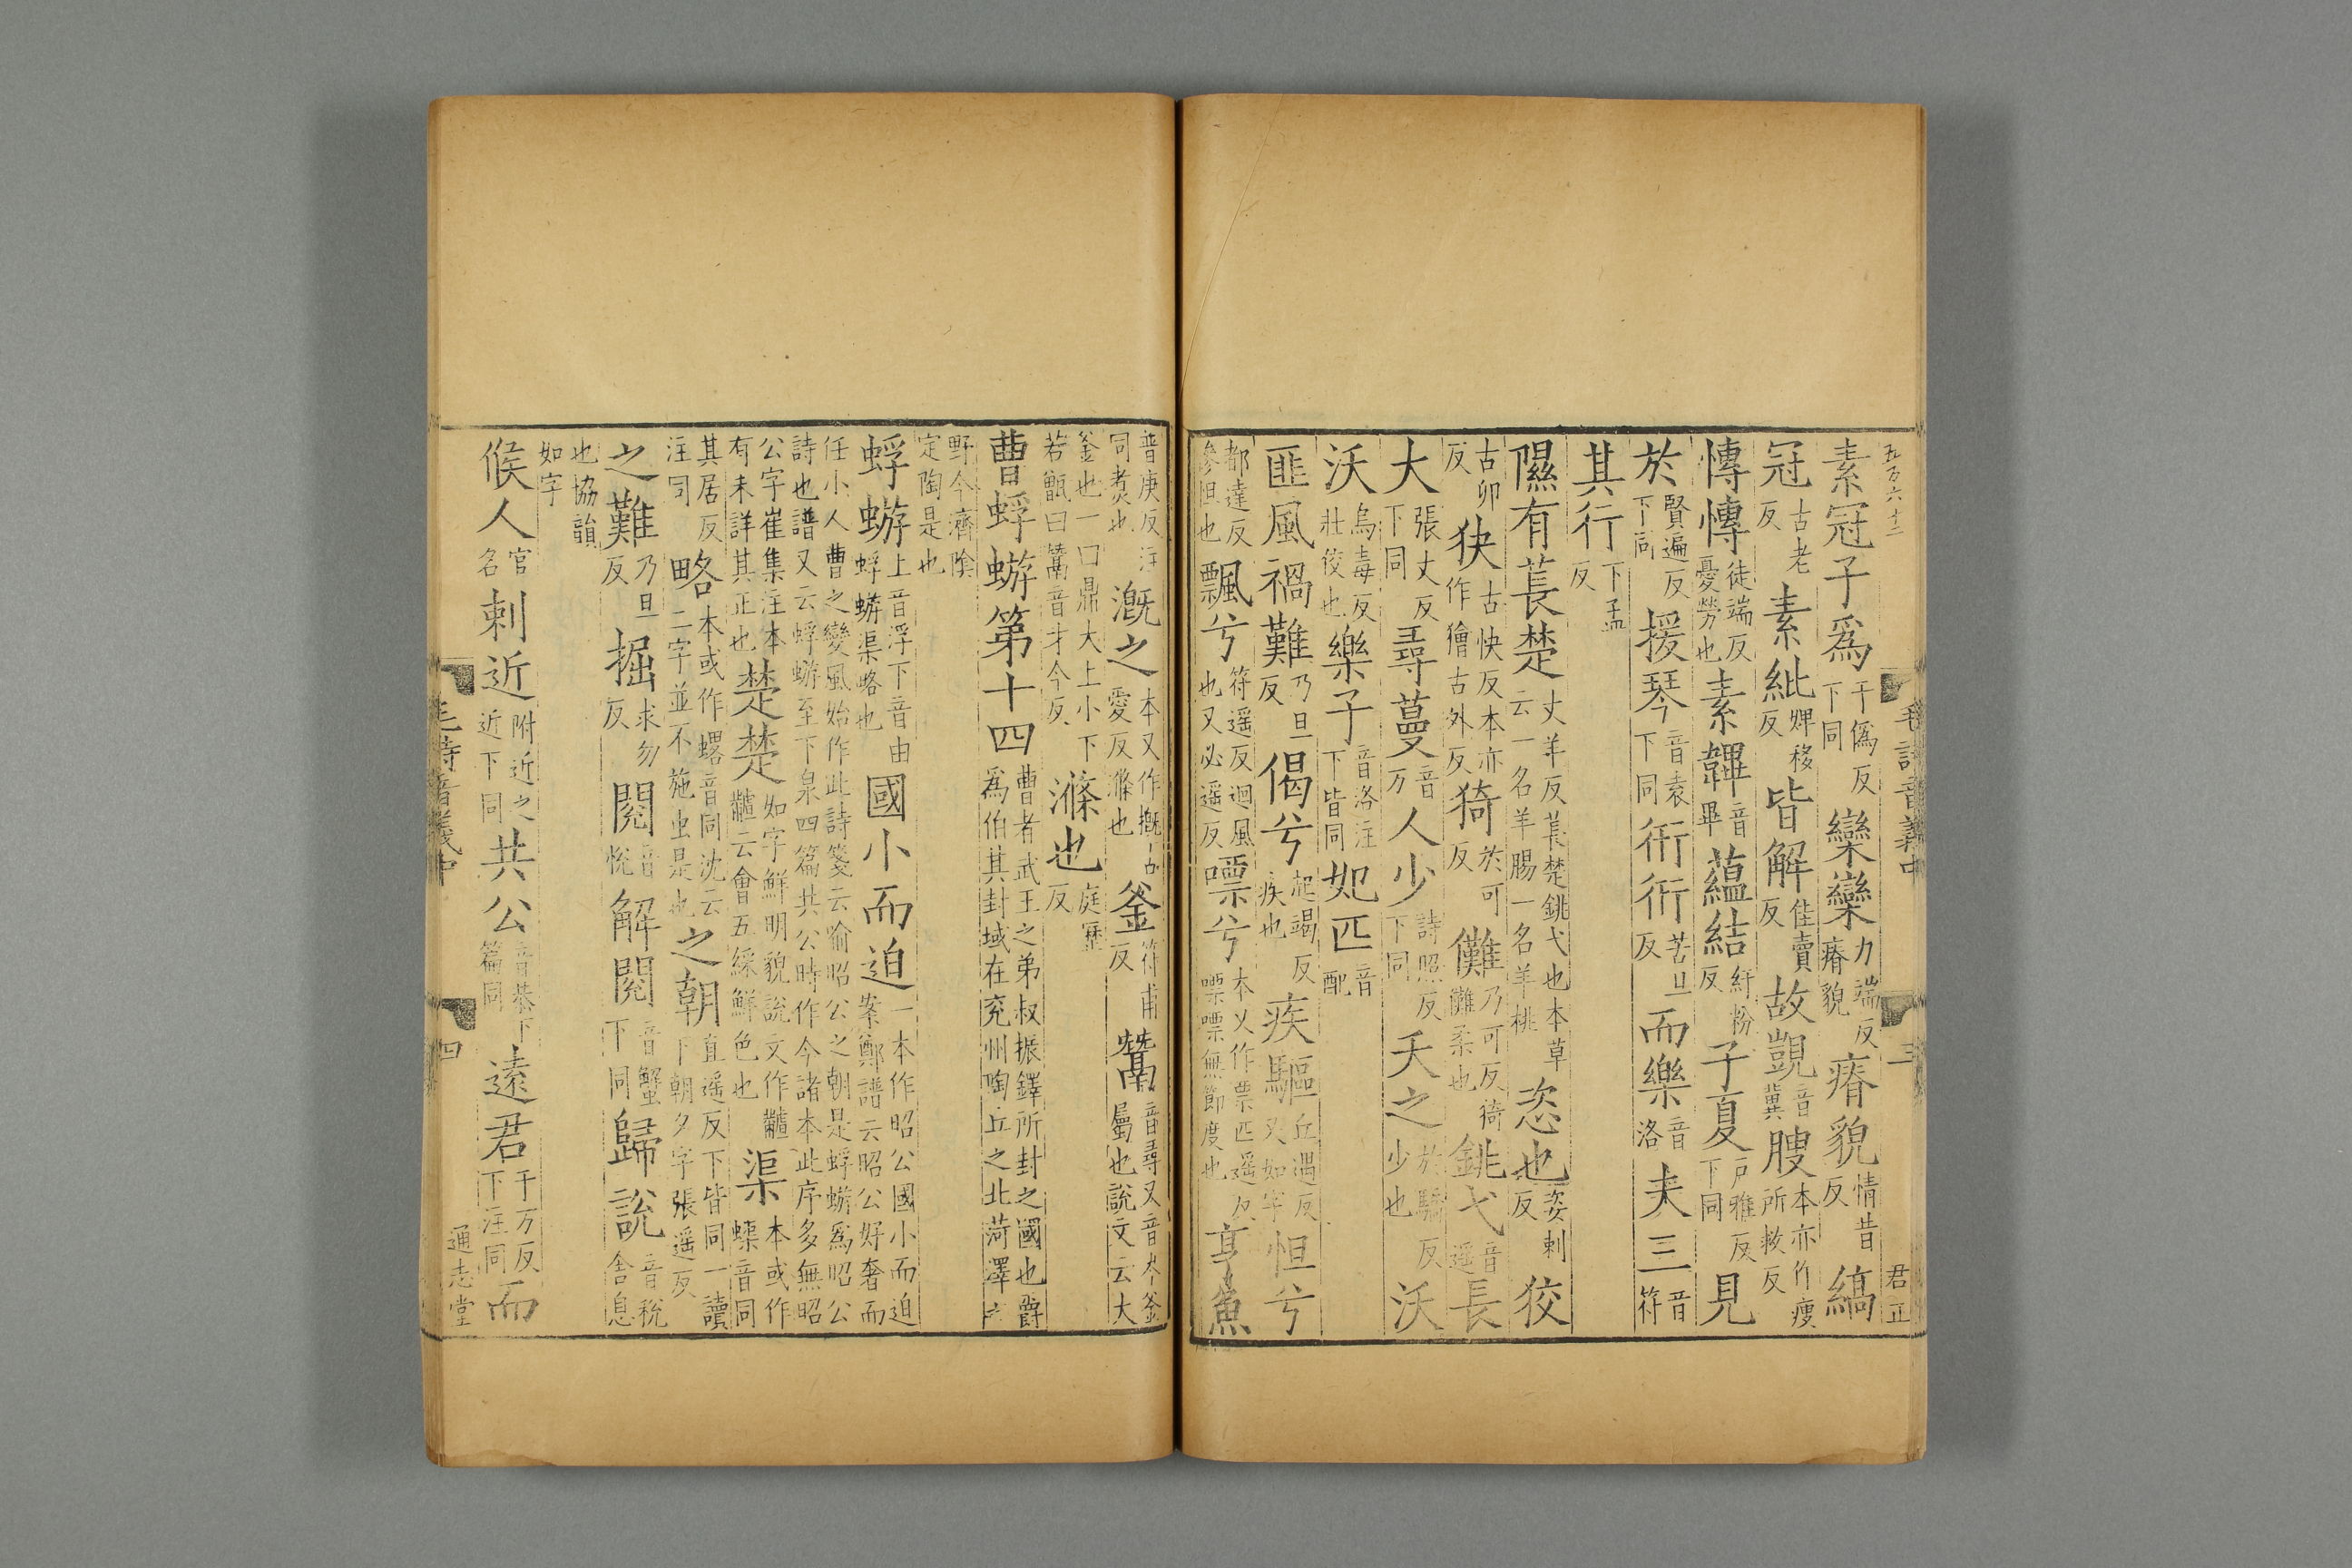 五万六十二
素冠子爲于僞反下同欒欒力端反瘠貌瘠貌情昔反縞
冠古老反素紕婢移反皆解佳賣反故覬音冀膄本亦作瘦所救反
慱慱徒端反憂勞也素韠音畢蘊結紆粉反子夏戸雅反下同見
於賢遍反下同援琴音袁下同衎衎苦旦反而樂音洛夫三音符
其行下孟反
隰有萇楚丈羊反萇楚銚弋也本草云一名羊腸一名羊桃恣也姿利反狡
古卯反狭古快反本亦作獪古外反猗於可反儺乃可反猗儺柔也銚弋音遥長
大張丈反下同蕁蔓音万人少詩照反下同夭之於驕反少也沃
沃烏毒反壯佼也樂子音洛注下皆同妃匹音配
匪風禍難乃旦反偈兮起竭反疾也疾驅丘遇反又如字怛兮
都達反慘怛也飄兮符遥反迴風也又必遥反嘌兮本又作票匹遥反嘌嘌無節度也亨魚
毛詩音義中 三 君正
普庚反注同煑也漑之本又作摡古愛反滌也釜符甫反鬵音尋又音岑釜屬也說文云大
釜也一曰鼎大上小下若甑曰鬵音才今反滌也庭歷反
曹蜉蝣第十四曹者武王之弟叔振鐸所封之國也爵爲伯其封域在兖州陶丘之北菏澤之
野今濟隂定陶是也
蜉蝣上音浮下音由蜉蝣渠略也國小而迫一本作昭公國小而迫案鄭譜云昭公好奢而
任小人曹之變風始作此詩箋云喻昭公之朝是蜉蝣爲昭公詩也譜又云蜉蝣至下泉四篇共公時作今諸本此序多無昭
公字崔集注本有未詳其正也楚楚如字鮮明貌說文作䵝䵝云會五綵鮮色也渠本或作蟝音同
其居反略本或作䗉音同沈云二字並不施虫是也之朝直遥反下皆同一讀下朝夕字張遥反注同
之難乃旦反掘求勿反閱音悅解閱音蟹下同歸說音稅舍息
也協韻如字
候人官名刺近附近之近下同共公音恭下篇同遠君于万反下注同而
毛詩音義中 四 通志堂